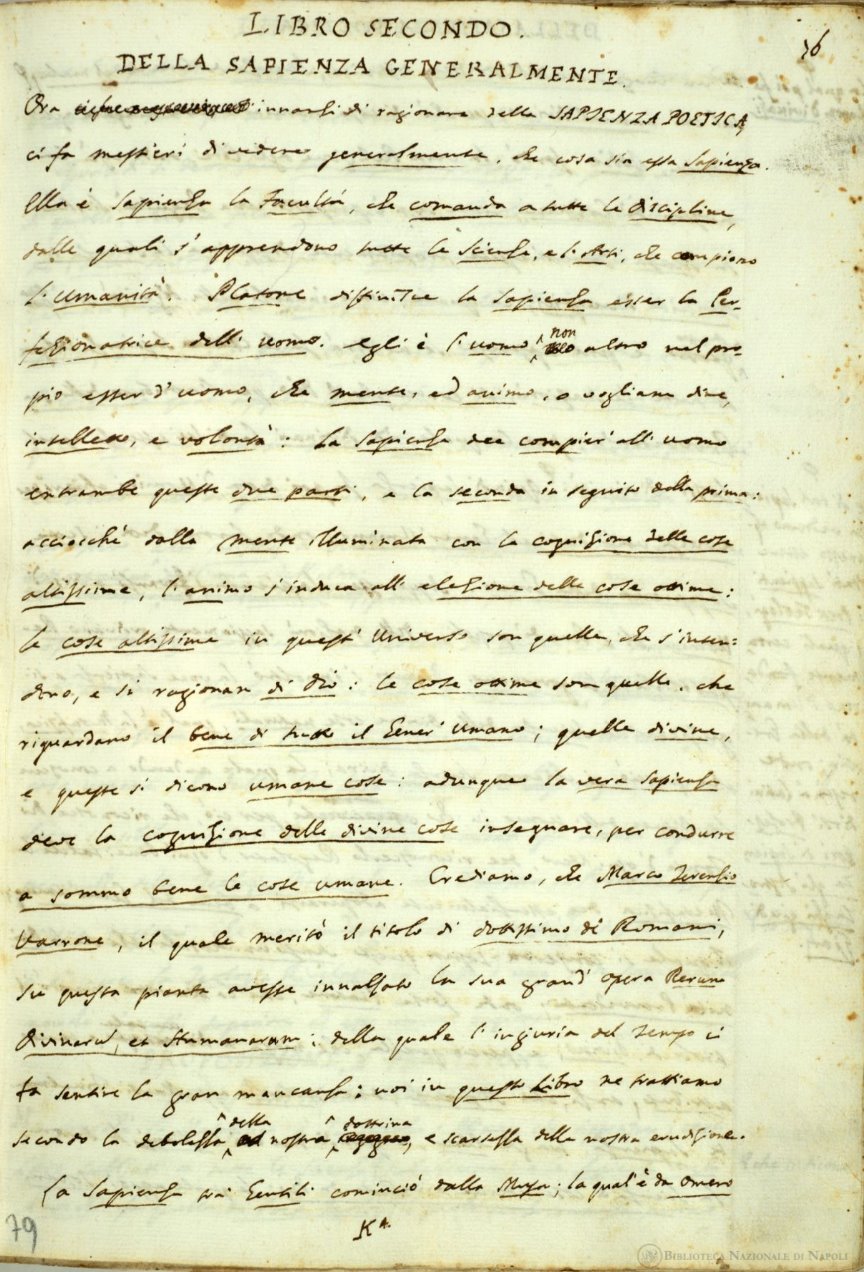 LIBRO SECONDO.
76
DELLA SAPIENZA GENERALMENTE.
Ora innanzi di ragionare della SAPIENZA POETICA,
ci fa mestieri di vedere generalmente, che cosa sia essa Sapienza.
Ella è Sapienza la Facultà, che comanda a tutte le Discipline,
dalle quali s'apprendono tutte le Scienze, e l'Arti, che compiono
l'Umanità. Platone diffinisce la Sapienza esser la Per-
fezionatrice dell'uomo. Egli è l'uomo non altro nel pro-
pio esser d'uomo, che mente, ed animo, o vogliam dire,
intelletto, e volontà: La Sapienza dee compier' all'uomo
entrambe queste due parti, e la seconda in seguito della prima:
acciocchè dalla mente illuminata con la cognizione delle cose
altissime, l'animo s'induca all'elezione delle cose ottime:
le cose altissime in quest'Universo son quelle, che s'inten-
dono, e si ragionan di Dio: le cose ottime son quelle, che
riguardano il bene di tutto il Gener'Umano; quelle divine,
e queste si dicono umane cose: adunque la vera Sapienza
deve la cognizione delle divine cose insegnare, per condurre
a sommo bene le cose umane. Crediamo, che Marco Terenzio
Varrone, il quale meritò il titolo di dottissimo de' Romani,
su questa pianta avesse innalzato la sua grand'opera Rerum
Divinarū, et Humanarum; della quale l'ingiuria del Tempo ci
fa sentire la gran mancanza; noi in questo Libro ne trattiamo
secondo la debolezza della nostra dottrina, e scarsezza della nostra erudizione.
La Sapienza tra' Gentili cominciò dalla Musa; la qual'è da Omero
K
79
BIBLIOTECA NAZIONALE DI NAPOLI